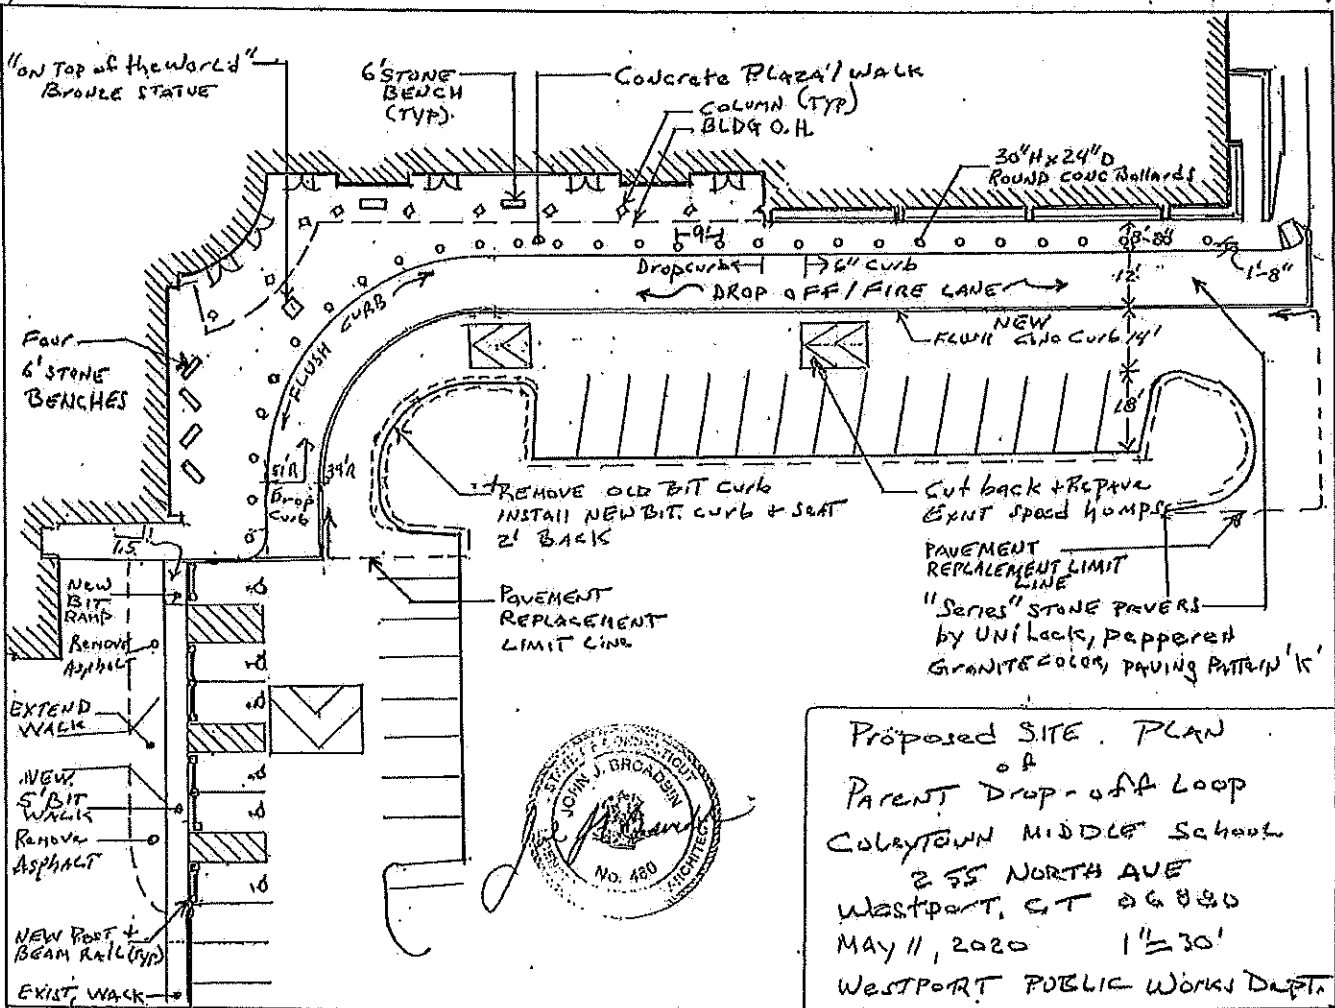 "ON TOP of the World"
BRONZE STATUE
6' STONE
BENCH
(TYP)
Concrete PLAZA / WALK
COLUMN (TYP)
BLDG O.H.
30"H x 24"D
ROUND CONC Bollards
9'
8'-8"
1'-8"
Dropcurb
6" Curb
12'
DROP OFF / FIRE LANE
NEW
Conc Curb
14'
18'
FLUSH CURB
Four
6' STONE
BENCHES
51'R
39'R
Drop
Curb
REMOVE OLD BIT Curb
INSTALL NEW BIT. Curb & SEAT
2' BACK
Cut back + Repave
EXNT Speed humps
PAVEMENT
REPLALEMENT LIMIT
LINE
"Series" STONE PAVERS
by UNILock, peppered
GRANITE COLOR, PAVING PATTERN 'K'
PAVEMENT
REPLACEMENT
LIMIT LINE
1.5'
New
BIT
RAMP
Remove
Asphalt
EXTEND
WALK
NEW
5' BIT
WALK
Remove
ASPHALT
NEW POST +
BEAM RAIL (TYP)
EXIST. WALK
JOHN J. BROADBIN
No. 480
ARCHITECT
Proposed SITE PLAN
of
PARENT Drop-off Loop
COLEYTOWN MIDDLE School
255 NORTH AVE
Westport, CT 06880
MAY 11, 2020 1"=30'
WESTPORT PUBLIC WORKS DEPT.